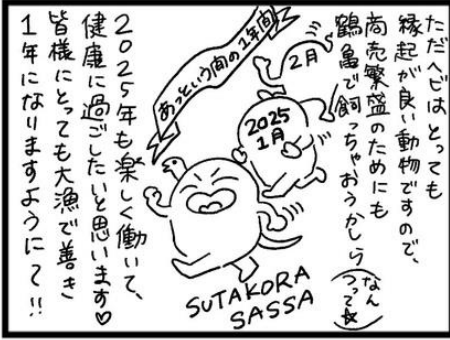 ただヘビはとっても
縁起が良い動物ですので、
商売繁盛のためにも
鶴亀で飼っちゃおうかしら
(なん
つって☆)
2月
2025
1月
あっという間の1年間
SUTAKORA
SASSA
2025年も楽しく働いて、
健康に過ごしたいと思います♡
皆様にとっても大漁で善き
1年になりますようにて!!